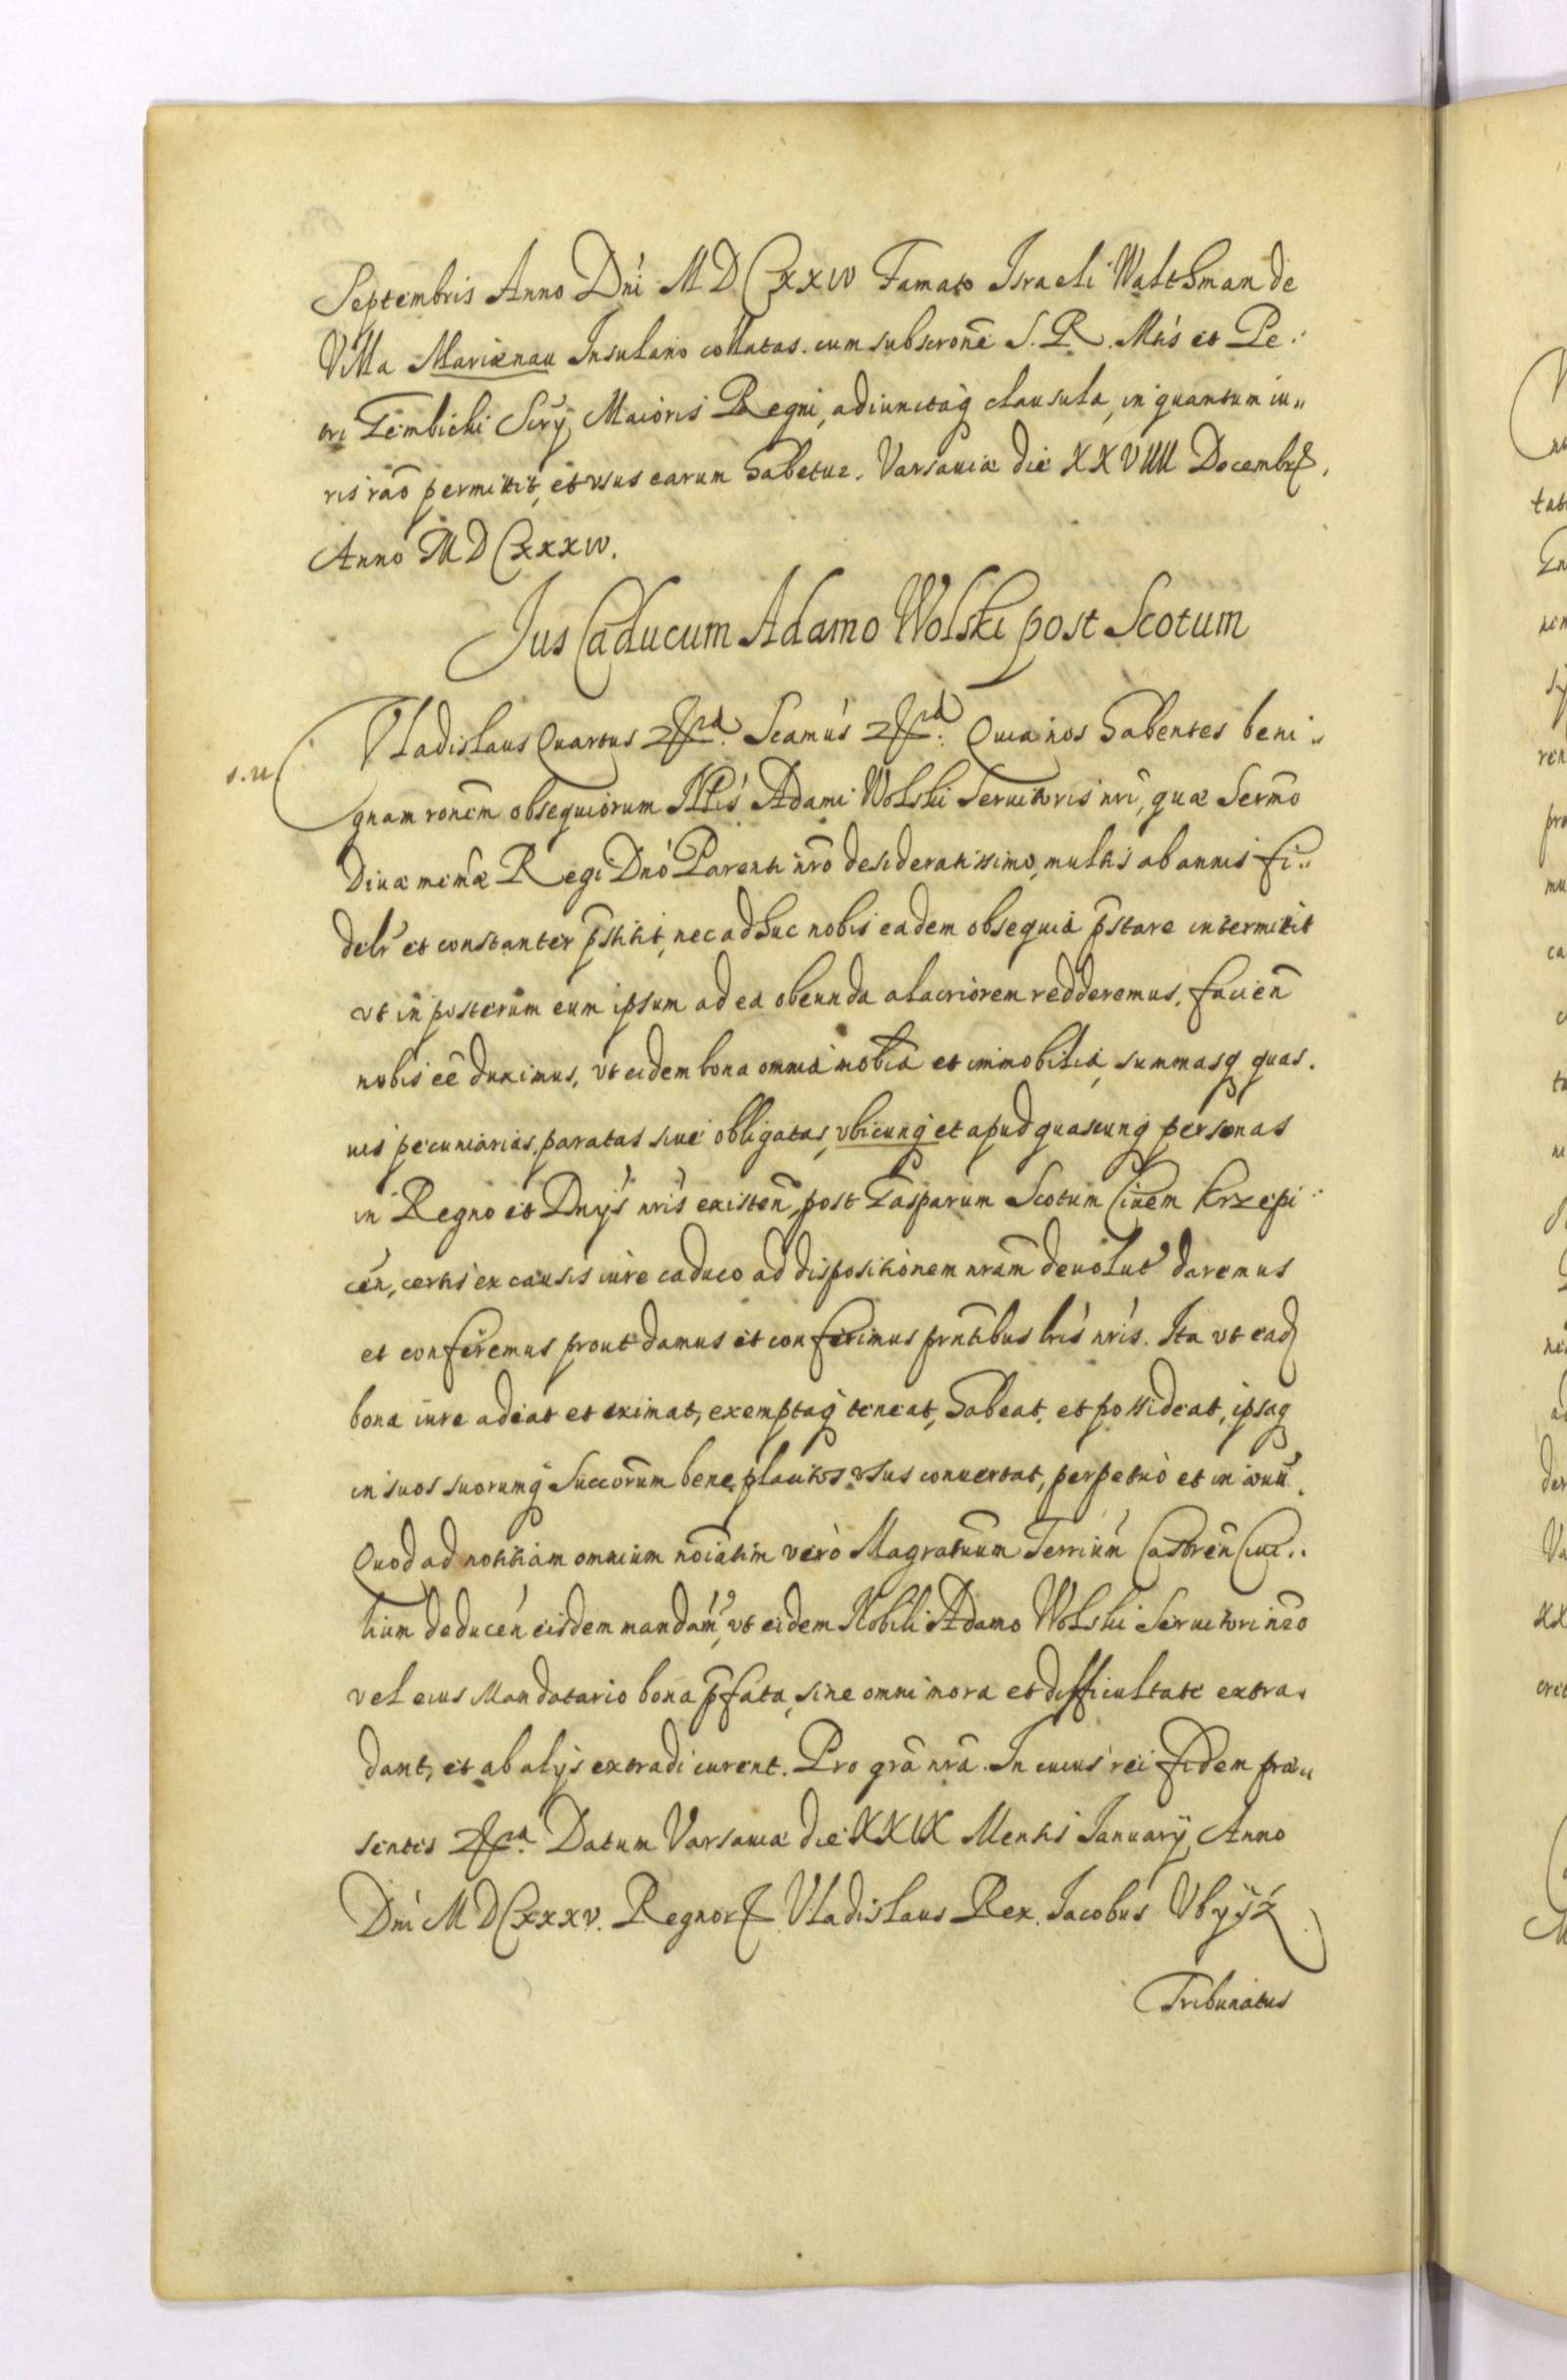 Septembris Anno Dni MDCXXIV Famato Israeli Walthman de
Villa Marienau Insulano collatas. cum subscrone S. R. Mtis et Pe..
tri Gembicki Scrij Maioris Regni, adiunctaq clausula, in quantum iu..
ris rao permittit, et usus earum habetur. Varsaviæ die XXVIIII Decembr.
Anno MDCXXXIV.
Jus Caducum Adamo Wolski post Scotum
s.n
Vladislaus Quartus etc. Scamus etc. Quia nos habentes beni..
gnam ronem obsequiorum Nblis Adami Wolski Servitoris nri, quæ Sermo
Divæ memæ Regi Dno Parenti nro desideratissimo, multis ab annis fi..
delr et constanter pstitit, nec adhuc nobis eadem obsequia pstare intermittit
ut in posterum eum ipsum ad ea obeunda alacriorem redderemus. facien
nobis ee duximus, ut eidem bona omnia mobia et immobilia, summasq quas.
vis pecuniarias, paratas sive obligatas, ubicunq et apud quascunq personas
in Regno et Dnijs nris existen, post Gasparum Scotum Civem Krzepi..
cen, certis ex causis iure caduco ad dispositionem nram devolut daremus
et conferemus prout damus et conferimus pntibus lris nris. Ita ut ead
bona iure adeat et eximat, exemptaq teneat, habeat, et possideat, ipsaq
in suos suorumq Succorum beneplacitos usus convertat, perpetuo et in ævu.
Quod ad notitiam omnium noiatim vero Magratuum Terrium Castren Civi..
lium deducen eisdem mandam, ut eidem Nobili Adamo Wolski Servitori nro
vel eius Mandatario bona pfata, sine omni mora et difficultate extra.
dant, et ab alijs extradi curent. Pro gra nra. In cuius rei fidem præ..
sentes etc. Datum Varsaviæ die XXIX Mensis Januarij Anno
Dni MDCXXXV. Regnor. Vladislaus Rex. Jacobus Ubyijż
Tribunatus